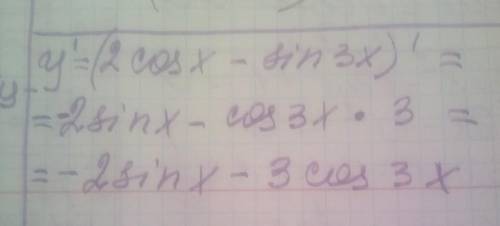 y' = (2 cos x - sin 3x)' =
= -2 sin x - cos 3x • 3 =
= - 2 sin x - 3 cos 3x